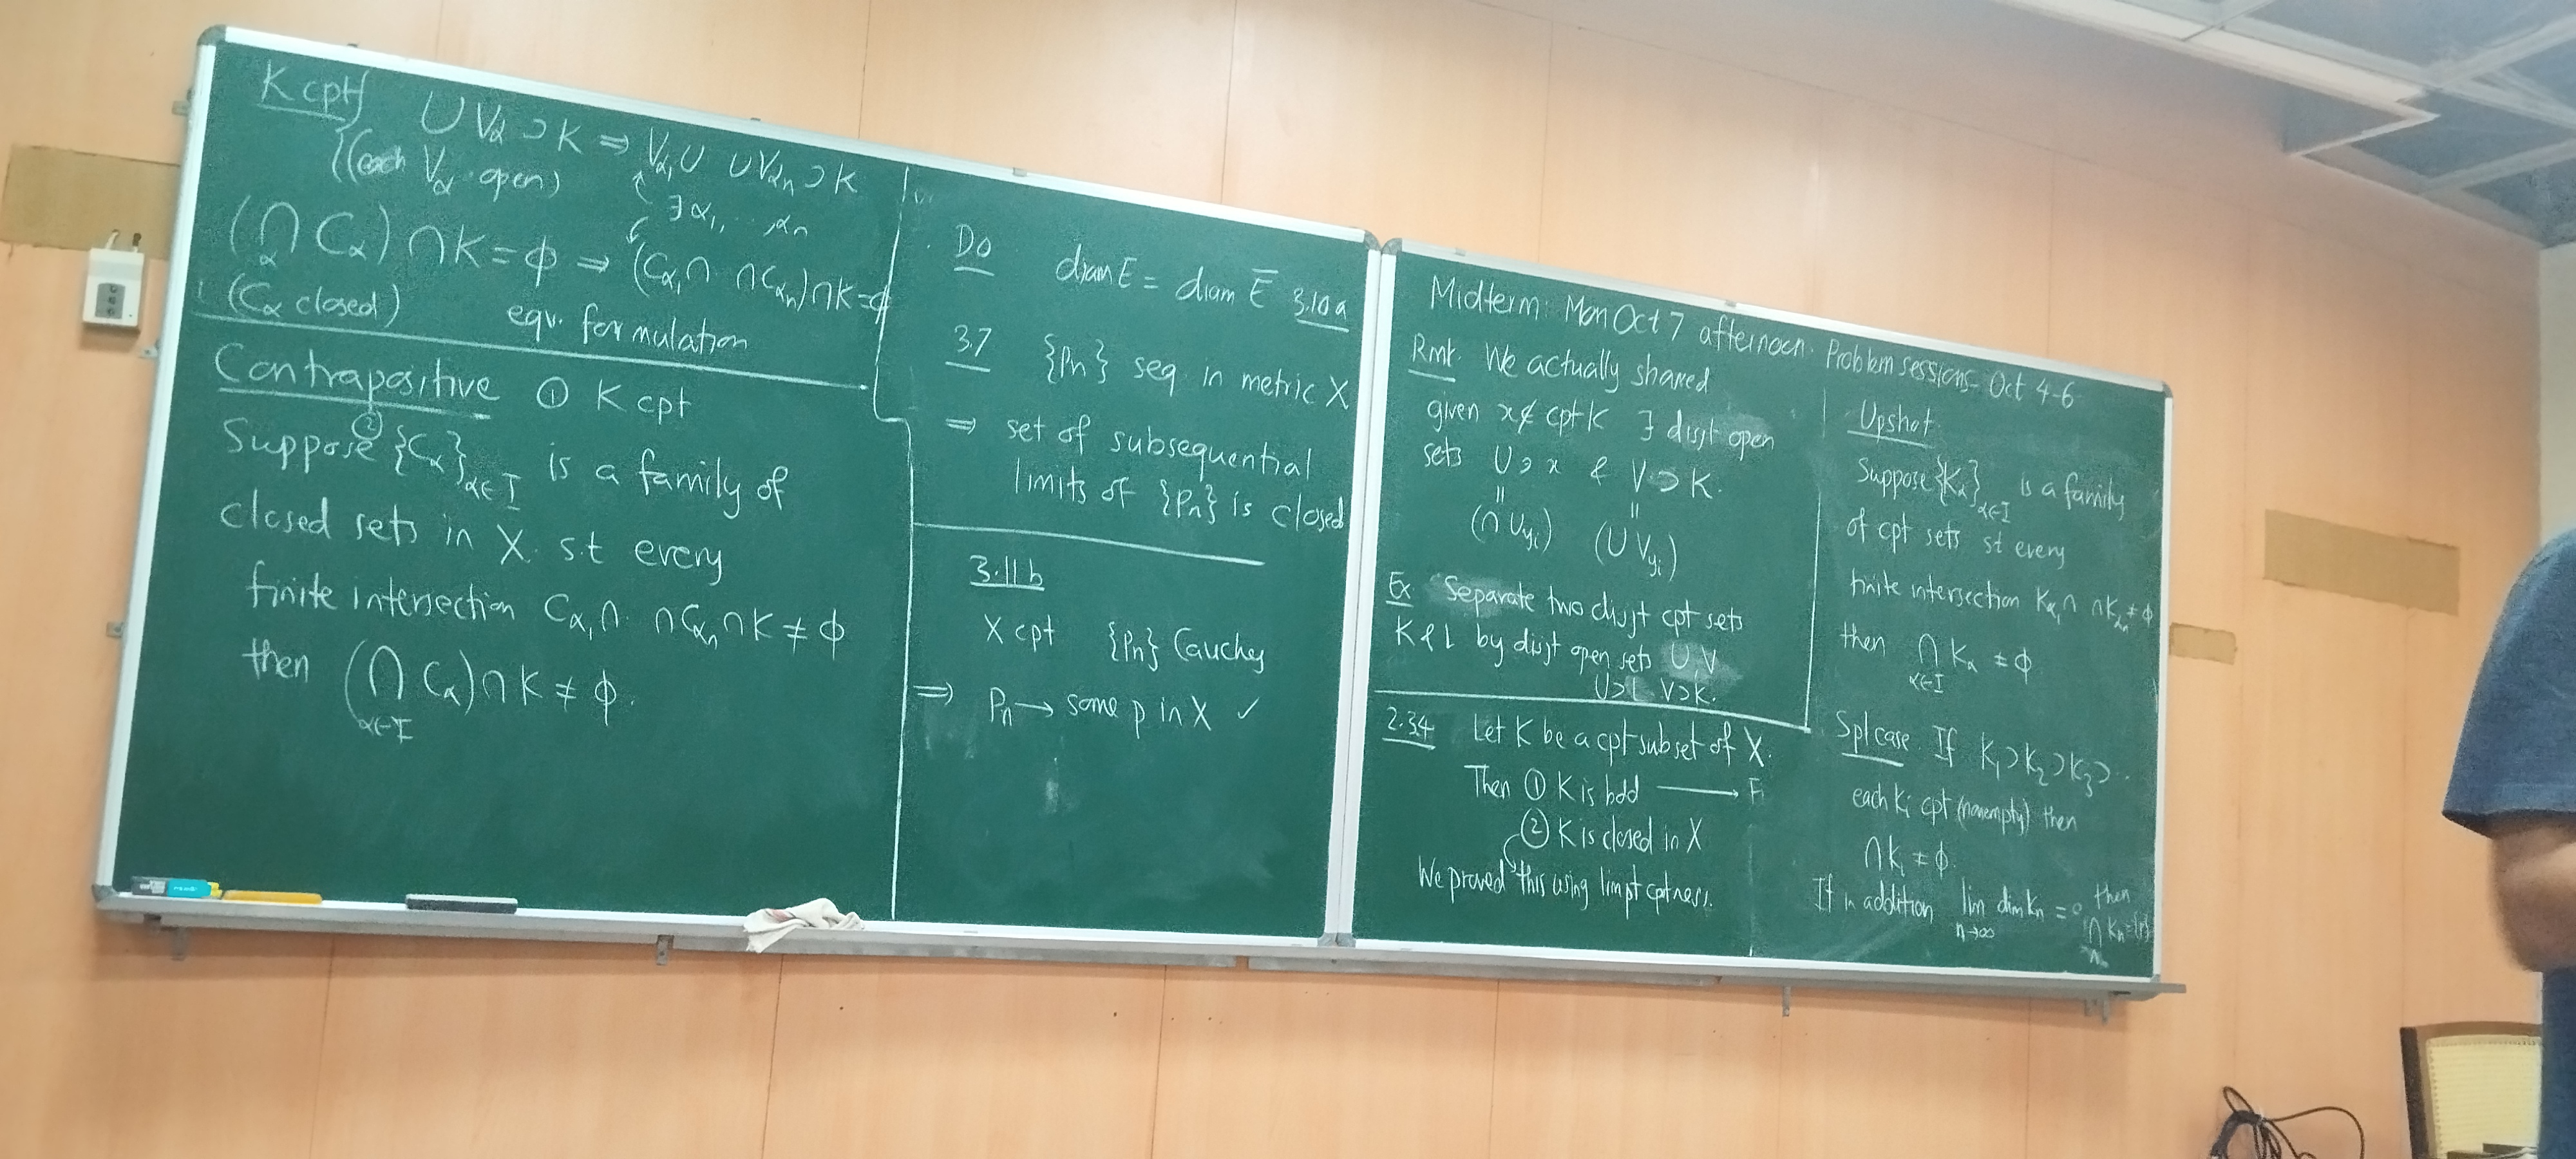 K cpt
∪ Vα ⊃ K ⇒ Vα₁ ∪ ∪ Vαₙ ⊃ K
(each Vα open)
∃ α₁, .. , αₙ
(∩ Cα) ∩ K = ϕ ⇒ (Cα₁ ∩ ∩ Cαₙ) ∩ K = ϕ
α
(Cα closed) eqv. formulation
Contrapositive ① K cpt
②
Suppose {Cα}α∈I is a family of
closed sets in X. s.t every
finite intersection Cα₁ ∩ ∩ Cαₙ ∩ K ≠ ϕ
then (∩ Cα) ∩ K ≠ ϕ.
α∈I
Do diam E = diam E̅ 3.10 a
3.7 {pn} seq. in metric X
⇒ set of subsequential
limits of {pn} is closed
3.11 b
X cpt {pn} Cauchy
⇒ pn → some p in X ✓
Midterm: Mon Oct 7 afternoon. Problem sessions Oct 4-6
Rmk. We actually showed
given x∉ cpt K ∃ disjt open
sets U ∋ x & V ⊃ K.
" "
(∩ Uyi) (∪ Vyi)
Ex Separate two disjt cpt sets
K & L by disjt open sets U, V
U⊃L V⊃K.
2.34 Let K be a cpt subset of X.
Then ① K is bdd →
② K is closed in X
We proved this using lim pt cptness.
Upshot
Suppose {Kα}α∈I is a family
of cpt sets st every
finite intersection Kα₁ ∩ ∩ Kαₙ ≠ ϕ
then ∩ Kα ≠ ϕ
α∈I
Spl case. If K₁ ⊃ K₂ ⊃ K₃ ⊃ ..
each Ki cpt (nonempty) then
∩ Ki ≠ ϕ.
If in addition lim dim Kn = 0 then
n→∞
∩ Kn = {p}
n